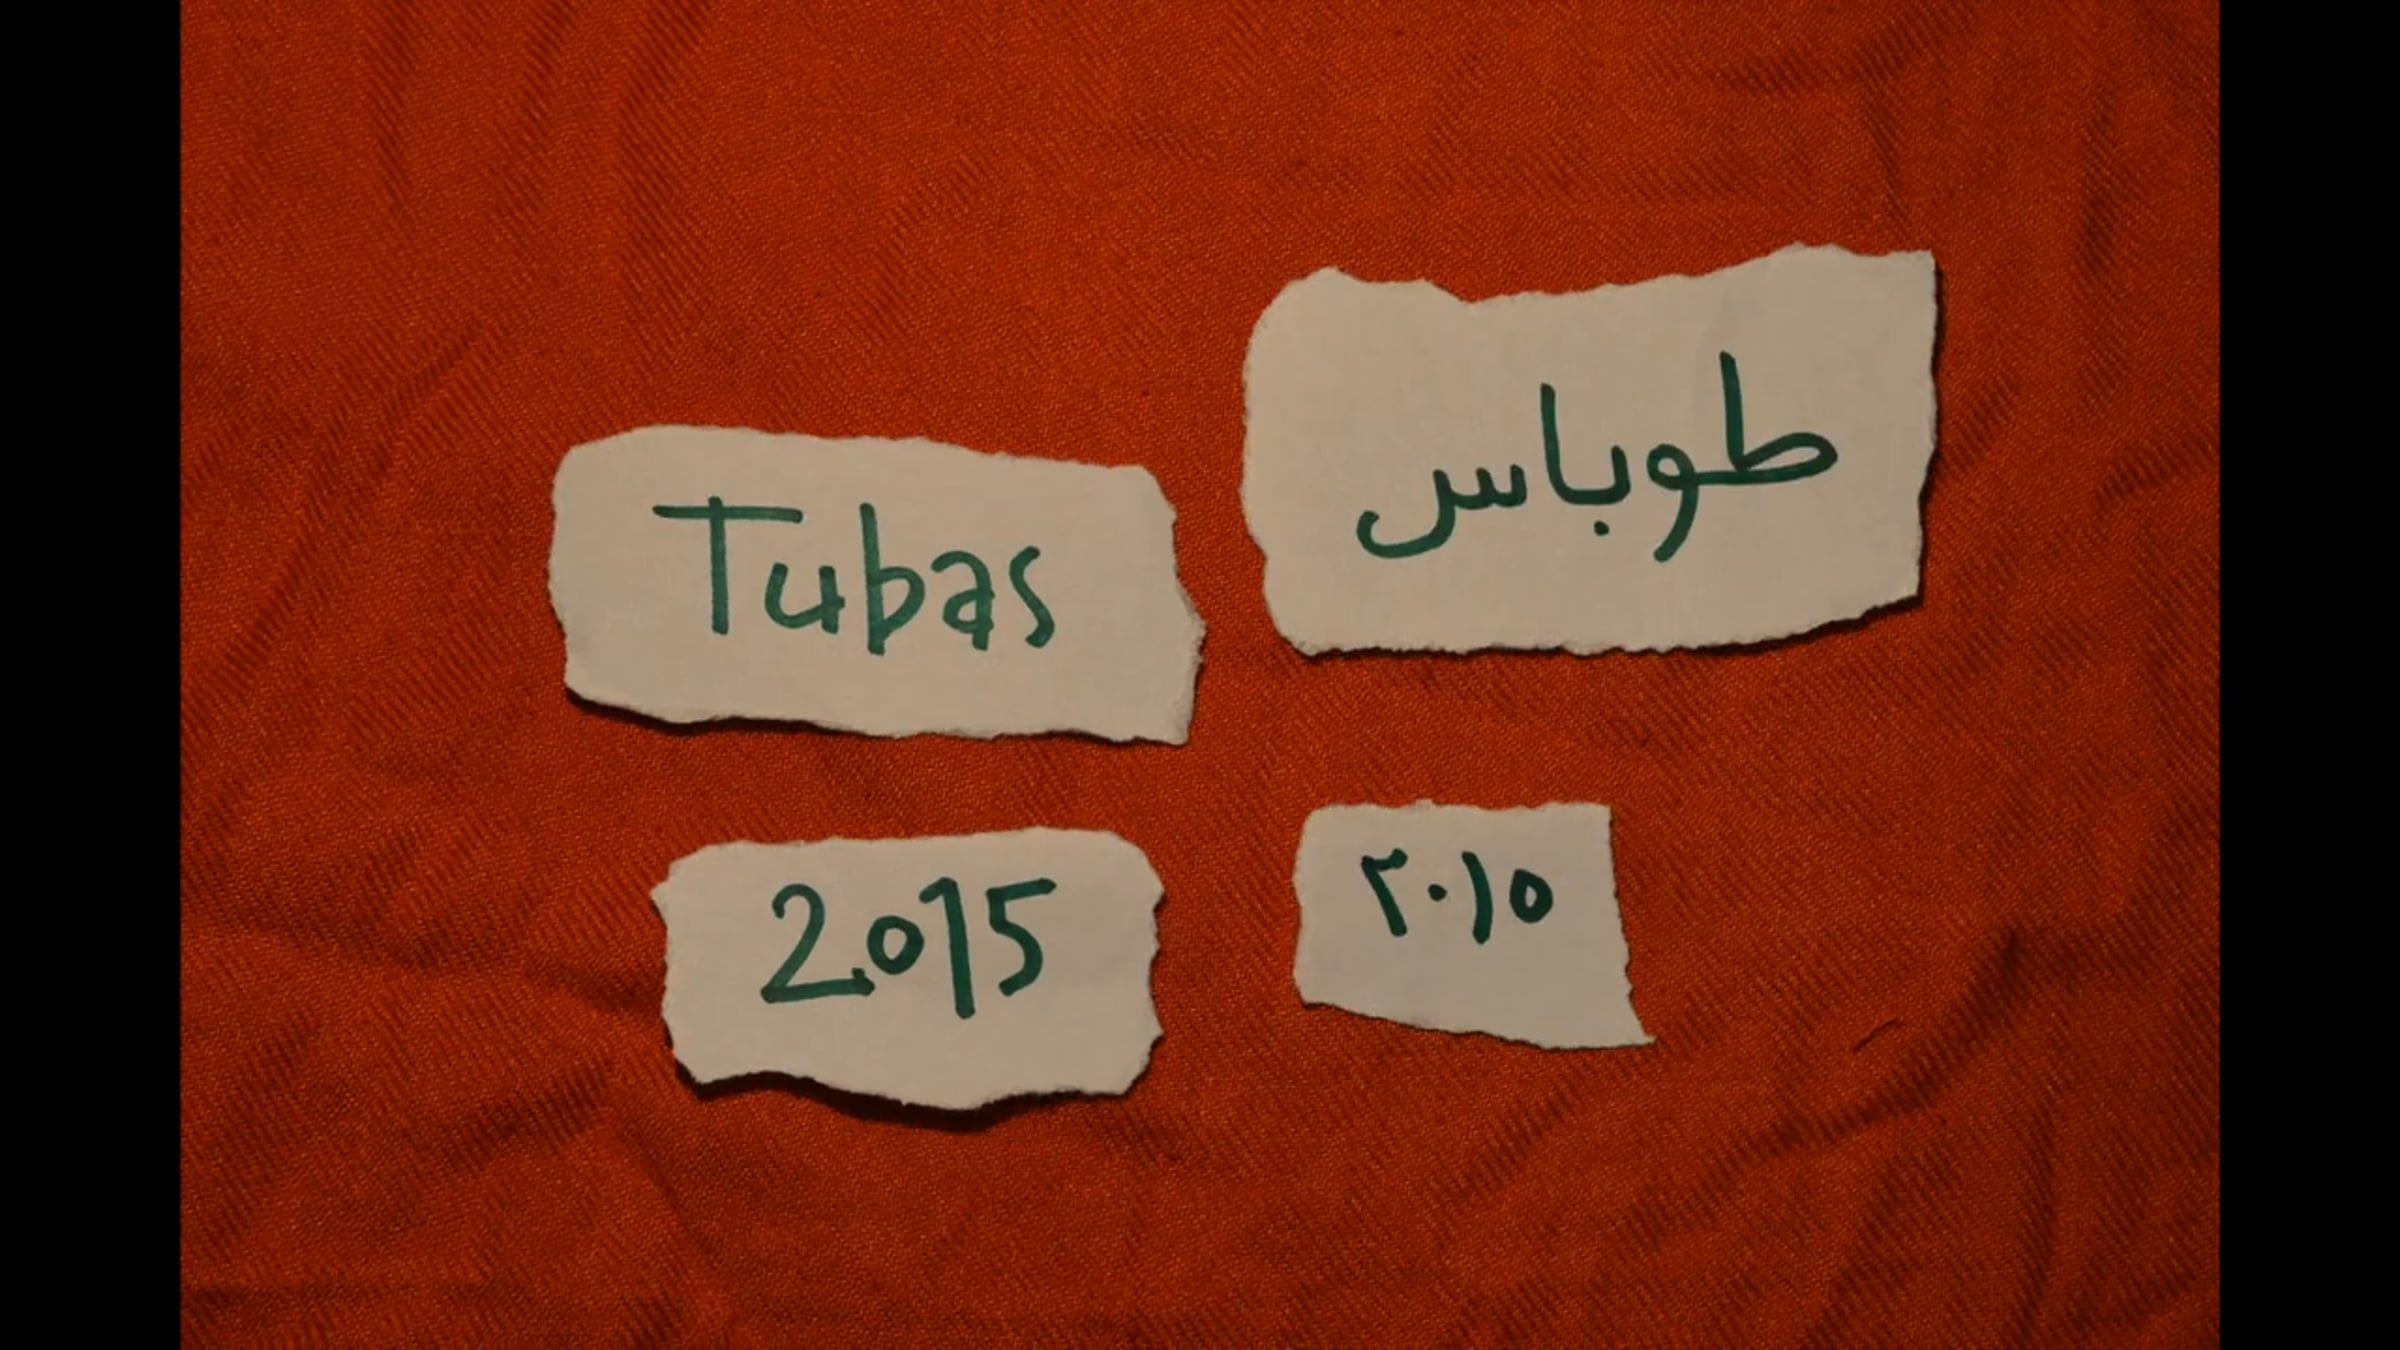 Tubas
طوباس
2015
٢٠١٥